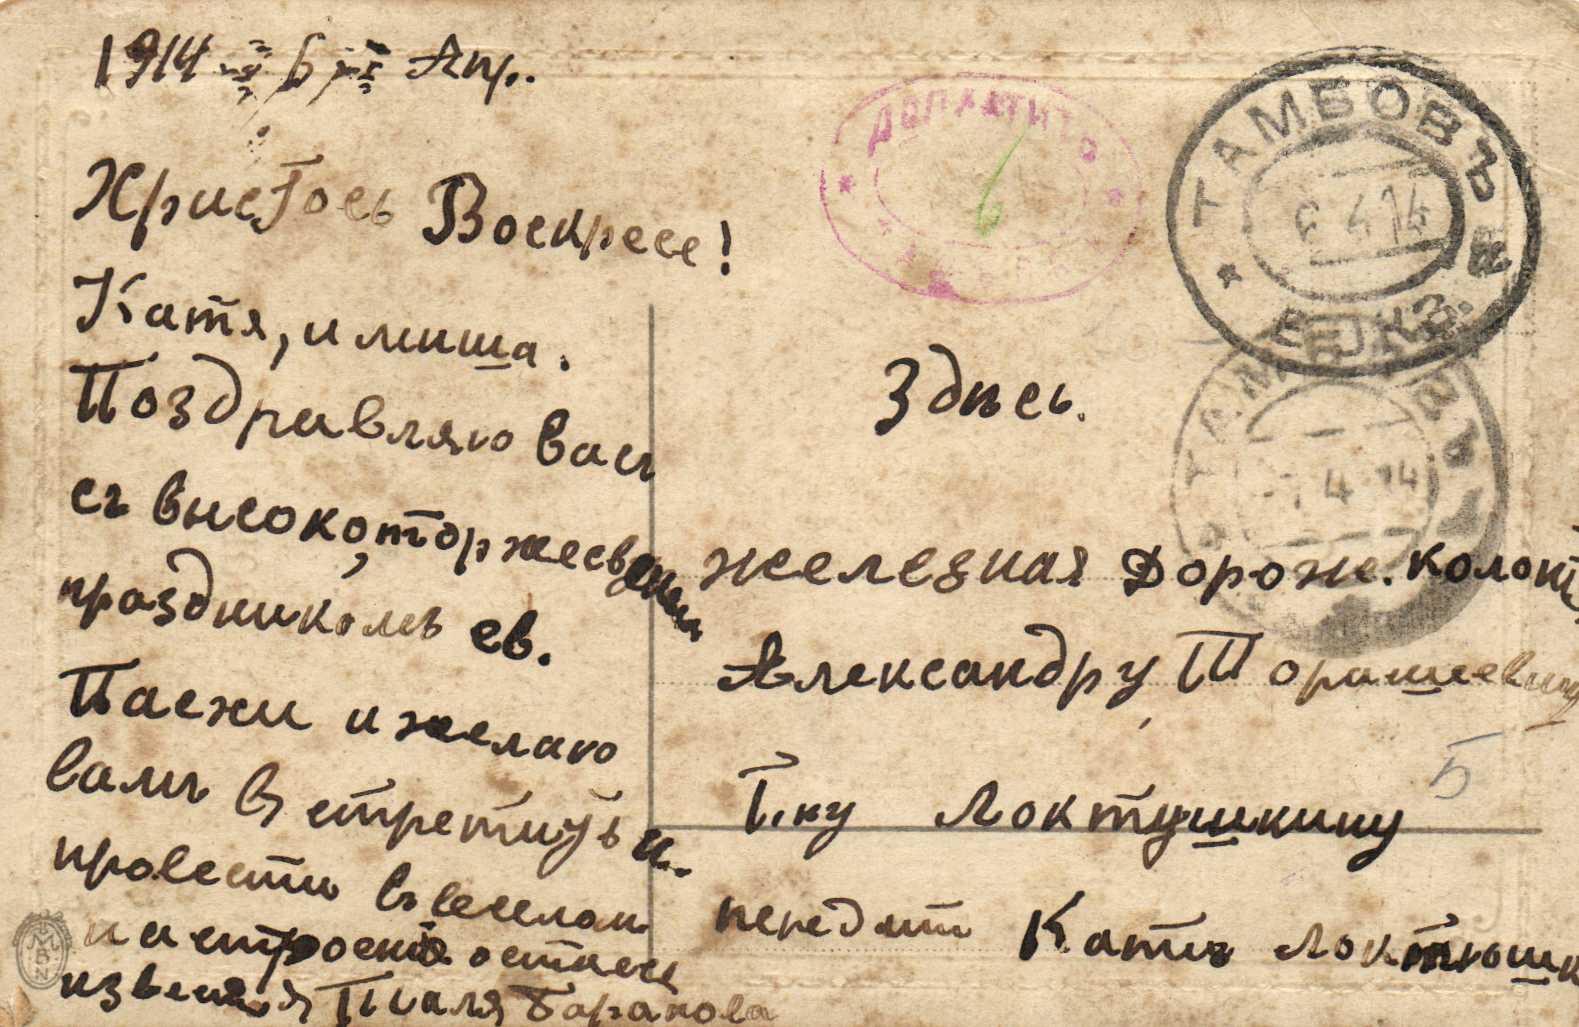 1914 6 Апр.
Христось Воскресе!
Катя, и миша.
Поздравляю васъ
съ высокоторжесвеным
праздникомъ св.
Пасхи и желаю
вамъ встретить и
провести въ веселом
настроение остаюсь
Баранова
ДОПЛАТИТЬ
6
ТАМБОВЪ
6 4 14
ВОКЗ.
ТАМБОВЪ
4 14
Здпсь.
железная Дорож. колон
Александру
Г.ну Локтушкину
передат Кати Локтюшк
Б
MBN